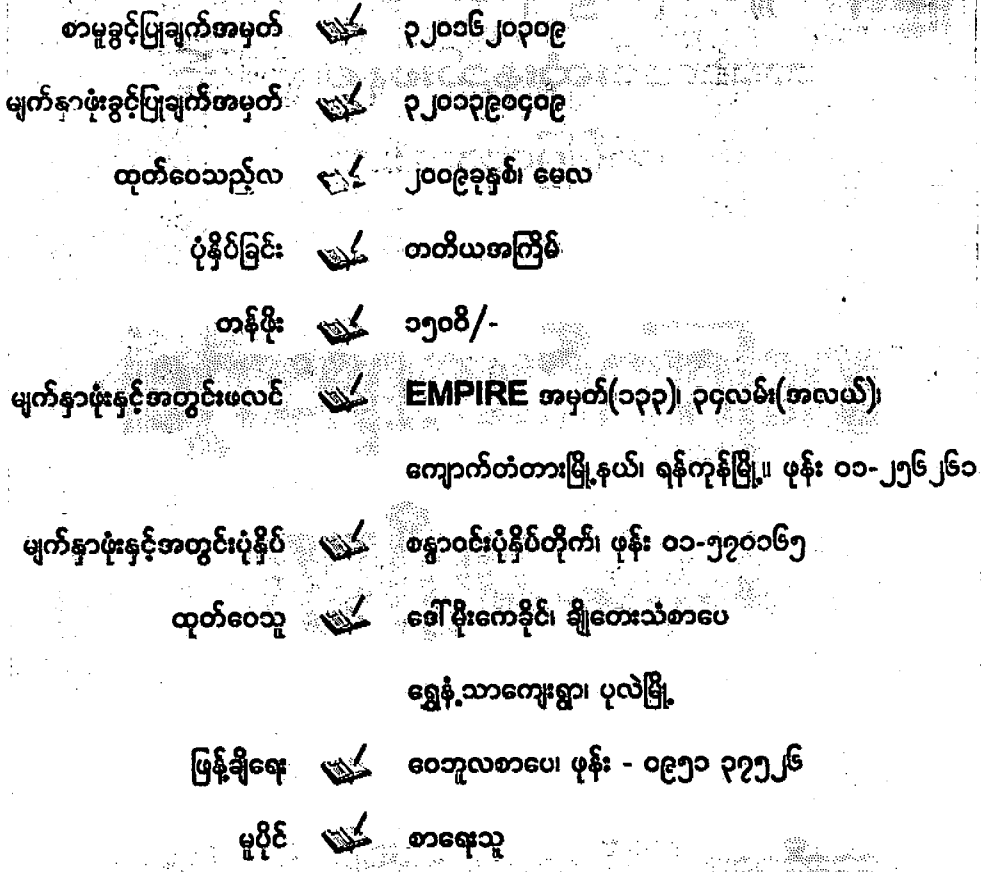 စာမူခွင့်ပြုချက်အမှတ် ၃၂၀၁၆၂၀၃၀၉
မျက်နှာဖုံးခွင့်ပြုချက်အမှတ် ၃၂၀၁၃၉၀၄၀၉
ထုတ်ဝေသည့်လ ၂၀၀၉ခုနှစ်၊ မေလ
ပုံနှိပ်ခြင်း တတိယအကြိမ်
တန်ဖိုး ၁၅၀၀ိ/-
မျက်နှာဖုံးနှင့်အတွင်းဖလင် EMPIRE အမှတ်(၁၃၃)၊ ၃၄လမ်း(အလယ်)၊
ကျောက်တံတားမြို့နယ်၊ ရန်ကုန်မြို့။ ဖုန်း ၀၁-၂၅၆၂၆၁
မျက်နှာဖုံးနှင့်အတွင်းပုံနှိပ် စန္ဒာဝင်းပုံနှိပ်တိုက်၊ ဖုန်း ၀၁-၅၇၀၁၆၅
ထုတ်ဝေသူ ဒေါ်မိုးကေခိုင်၊ ချိုတေးသံစာပေ
ရွှေနံ့သာကျေးရွာ၊ ပုလဲမြို့
ဖြန့်ချိရေး ဝေဘူလစာပေ၊ ဖုန်း - ၀၉၅၁ ၃၇၅၂၆
မူပိုင် စာရေးသူ